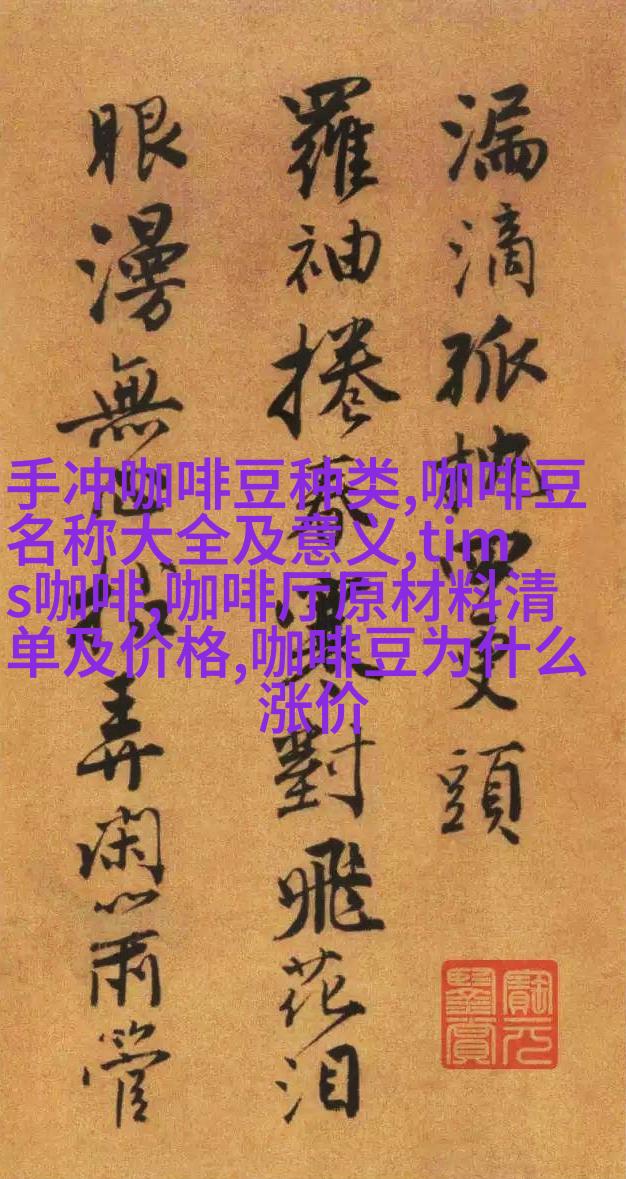 漏滴孤枕更頭
羅袖捲春寒對飛花泪
眼漫無弄閑管
手冲咖啡豆种类,咖啡豆
名称大全及意义,tim
s咖啡,咖啡厅原材料清
单及价格,咖啡豆为什么
涨价